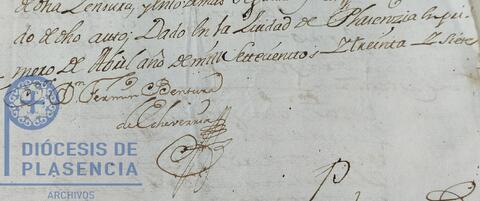 de dha Zensura, y
de dho auto; Dado en la Ciudad de Plasenzia en pri
mero de Abril año de mill Settezientos Y treinta Y Siete
Dn Fermin Bentura
de Echeverria
DIÓCESIS DE
PLASENCIA
ARCHIVOS